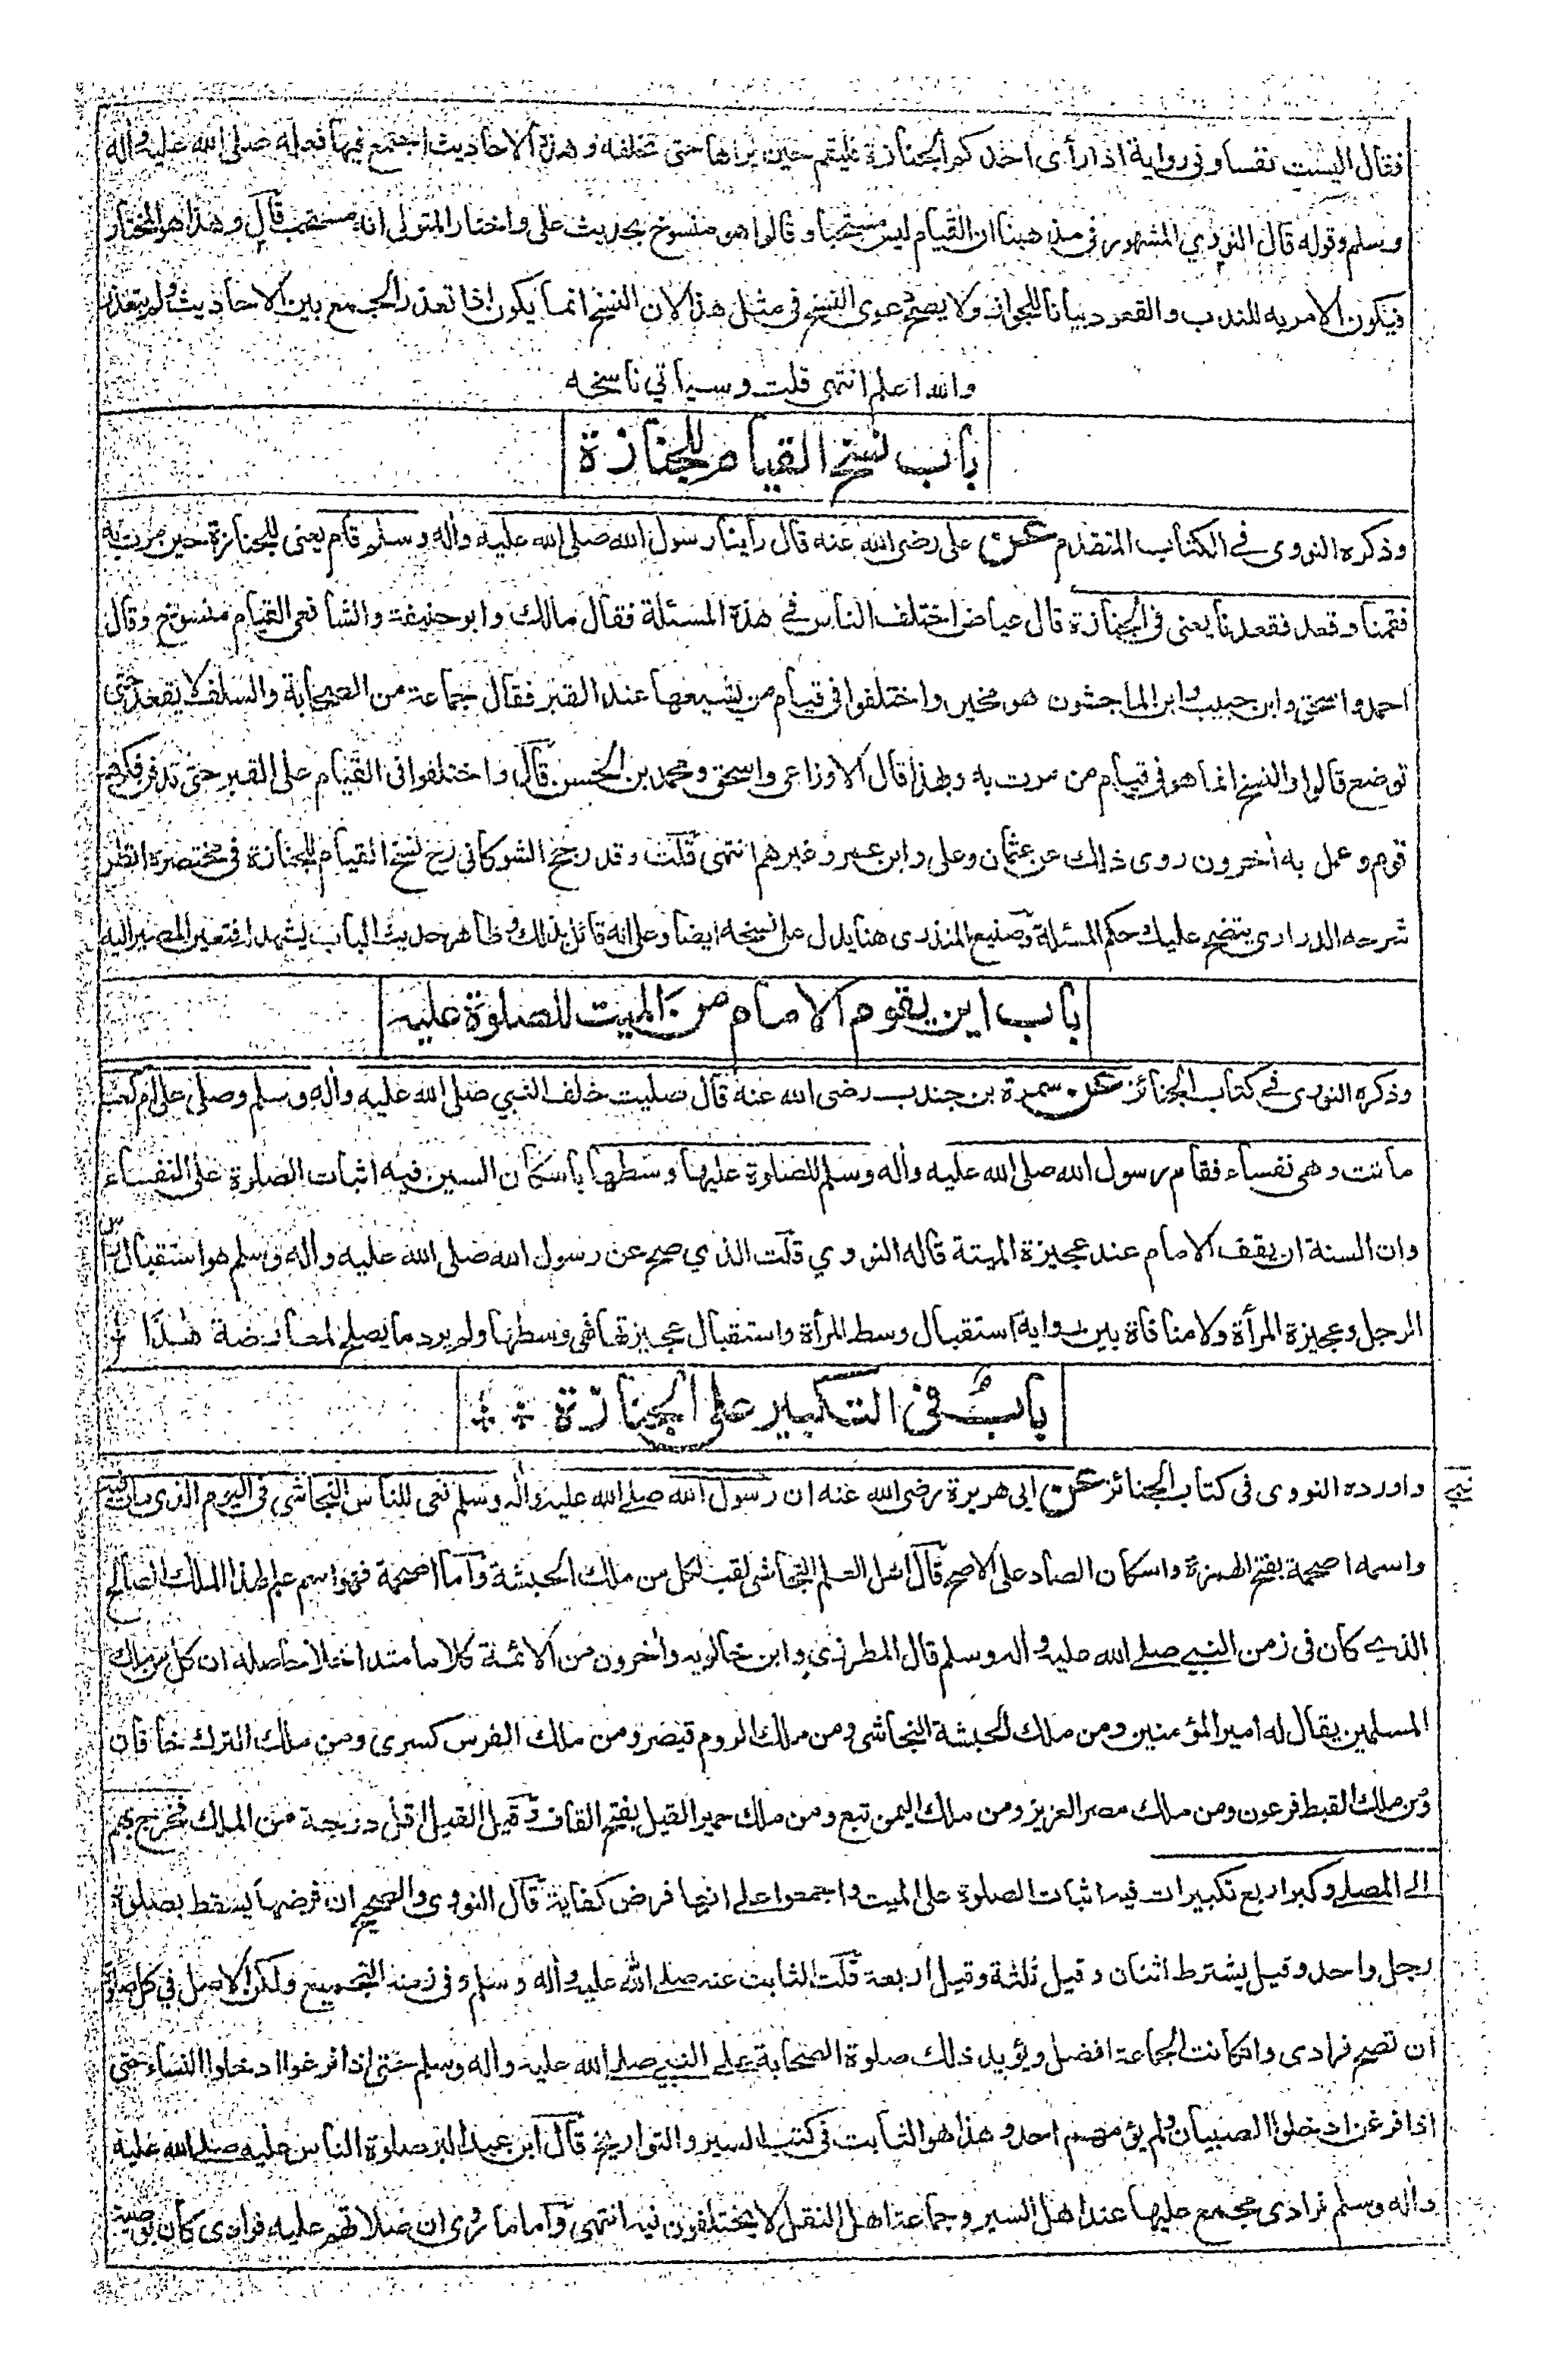 فقال اليست نفسا وفى رواية اذا رأى احدكم الجنازة فليقم حين يراها حتى تخلفه وهذه الاحاديث اجتمع فيها فعله صلى الله عليه واله
وسلم وقوله قال النووي المشهور فى مذهبنا ان القيام ليس مستحبا وقالوا هو منسوخ بحديث على واختار المتولى انه مستحب قال وهذا هو المختار
فيكون الامر به للندب والقعود بيانا للجواز ولا يصح دعوى النسخ فى مثل هذا لان النسخ انما يكون اذا تعذر الجمع بين الاحاديث ولم يتعذر
والله اعلم انتهى قلت وسياتي ناسخه
باب نسخ القيام للجنازة
وذكره النووى فے الكتاب المتقدم عن على رضى الله عنه قال رأينا رسول الله صلى الله عليه واله وسلم قام يعنى للجنازة حين مرت به
فقمنا وقعد فقعدنا يعنى فى الجنازة قال عياض اختلف الناس فے هذه المسئلة فقال مالك وابو حنيفة والشافعى القيام منسوخ وقال
احمد واسحق وابن حبيب وابن الماجشون هو مخير واختلفوا فى قيام من يشيعها عند القبر فقال جماعة من الصحابة والسلف لا يقعد حتى
توضع قالوا والنسخ انما هو فى قيام من مرت به وبهذا قال الاوزاعى واسحق ومحمد بن الحسن قال واختلفوا فى القيام على القبر حتى تدفن فكرهه
قوم وعمل به أخرون روى ذلك عن عثمان وعلى وابن عمر وغيرهم انتهى قلت وقد رجح الشوكانى رح نسخ القيام للجنازة فى مختصره انظر
شرحه الدرارى يتضح عليك حكم المسئلة وصنيع المنذرى هنا يدل على نسخه ايضا وعلى انه قائل بذلك وظاهر حديث الباب يشهد له فتعين المصير اليه
باب اين يقوم الامام من الميت للصلوة عليه
وذكره النووى فے كتاب الجنائز عن سمرة بن جندب رضى الله عنه قال صليت خلف النبي صلى الله عليه واله وسلم وصلى على ام كعب
ماتت وهى نفساء فقام رسول الله صلى الله عليه واله وسلم للصلوة عليها وسطها باسكان السين فيه اثبات الصلوة على النفساء
وان السنة ان يقف الامام عند عجيزة الميتة قاله النووي قلت الذي صح عن رسول الله صلى الله عليه واله وسلم هو استقبال رأس
الرجل وعجيزة المرأة ولا منافاة بين رواية استقبال وسط المرأة واستقبال عجيزتها فهى وسطها ولم يرد ما يصلح لمعارضة هذا
باب فى التكبير على الجنازة
واورده النووى فى كتاب الجنائز عن ابى هريرة رضى الله عنه ان رسول الله صلے الله عليه واله وسلم نعى للناس النجاشى فى اليوم الذى مات فيه
واسمه اصحمة بفتح الهمزة واسكان الصاد على الاصح قال اهل العلم النجاشى لقب لكل من ملك الحبشة واما اصحمة فهو اسم علم لهذا الملك الصالح
الذے كان فى زمن النبے صلے الله عليه واله وسلم قال المطرزى وابن خالويه وأخرون من الائمة كلاما متداخلا حاصله ان كل من ملك
المسلمين يقال له امير المؤمنين ومن ملك الحبشة النجاشى ومن ملك الروم قيصر ومن ملك الفرس كسرى ومن ملك الترك خاقان
ومن ملك القبط فرعون ومن ملك مصر العزيز ومن ملك اليمن تبع ومن ملك حمير القيل بفتح القاف وقيل القيل اقل درجة من الملك فخرج بهم
الے المصلے وكبر اربع تكبيرات فيه اثبات الصلوة على الميت واجمعوا علے انها فرض كفاية قال النووى والصحيح ان فرضها يسقط بصلوة
رجل واحد وقيل يشترط اثنان وقيل ثلثة وقيل اربعة قلت الثابت عنه صلے الله عليه واله وسلم وفى زمنه التجميع ولكن الاصل في كل صلوة
ان تصح فرادى وان كانت الجماعة افضل ويؤيد ذلك صلوة الصحابة علے النبے صلے الله عليه واله وسلم حتى اذا فرغوا ادخلوا النساء حتى
اذا فرغن ادخلوا الصبيان ولم يؤمهم احد وهذا هو الثابت فى كتب السير والتواريخ قال ابن عبد البر صلوة الناس عليه صلے الله عليه
واله وسلم فرادى مجمع عليها عند اهل السير وجماعة اهل النقل لا يختلفون فيه انتهى واما ما روى ان صلاتهم عليه فرادى كان بوصية